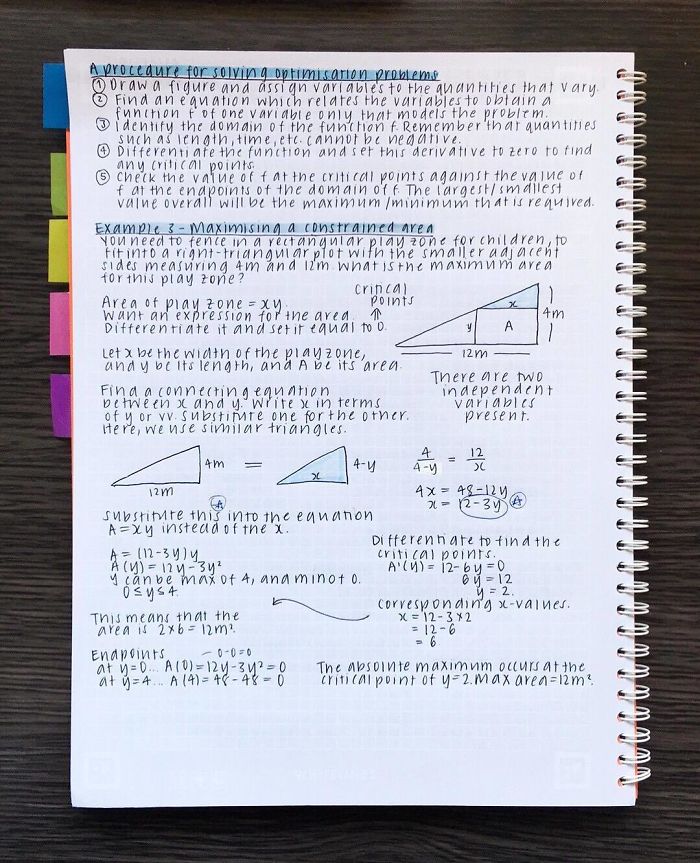 A procedure for solving optimisation problems
① Draw a figure and assign variables to the quantities that vary.
② Find an equation which relates the variables to obtain a
function f of one variable only that models the problem.
③ Identify the domain of the function f. Remember that quantities
such as length, time, etc. cannot be negative.
④ Differentiate the function and set this derivative to zero to find
any critical points.
⑤ Check the value of f at the critical points against the value of
f at the endpoints of the domain of f. The largest/smallest
value overall will be the maximum/minimum that is required.
Example 3 - Maximising a constrained area
You need to fence in a rectangular play zone for children, to
fit into a right-triangular plot with the smaller adjacent
sides measuring 4m and 12m. What is the maximum area
for this play zone?
Area of play zone = xy.
Want an expression for the area.
Differentiate it and set it equal to 0.
critical
points
↑
x
y
A
4m
12m
Let x be the width of the play zone,
and y be its length, and A be its area.
There are two
independent
variables
present.
Find a connecting equation
between x and y. Write x in terms
of y or vv. Substitute one for the other.
Here, we use similar triangles.
4m
12m
=
x
4-y
4/4-y = 12/x
4x = 48-12y
x = 12-3y A
A
Substitute this into the equation
A=xy instead of the x.
A = (12-3y)y
A(y) = 12y-3y²
y can be max of 4, and min of 0.
0≤y≤4.
Differentiate to find the
critical points.
A'(y) = 12-6y=0
6y=12
y = 2.
corresponding x-values.
x = 12-3×2
= 12-6
= 6
This means that the
area is 2×6=12m².
Endpoints
0-0=0
at y=0... A(0)=12y-3y²=0
at y=4... A(4)=48-48=0
The absolute maximum occurs at the
critical point of y=2. Max area=12m².